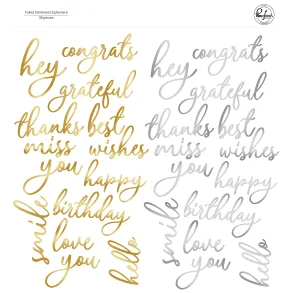 Foiled Sentiment Ephemera
congrats
hey
grateful
thanks best
miss wishes
you
happy
smile
birthday
love
you
hello
congrats
hey
grateful
thanks best
miss wishes
you
happy
smile
birthday
love
you
hello